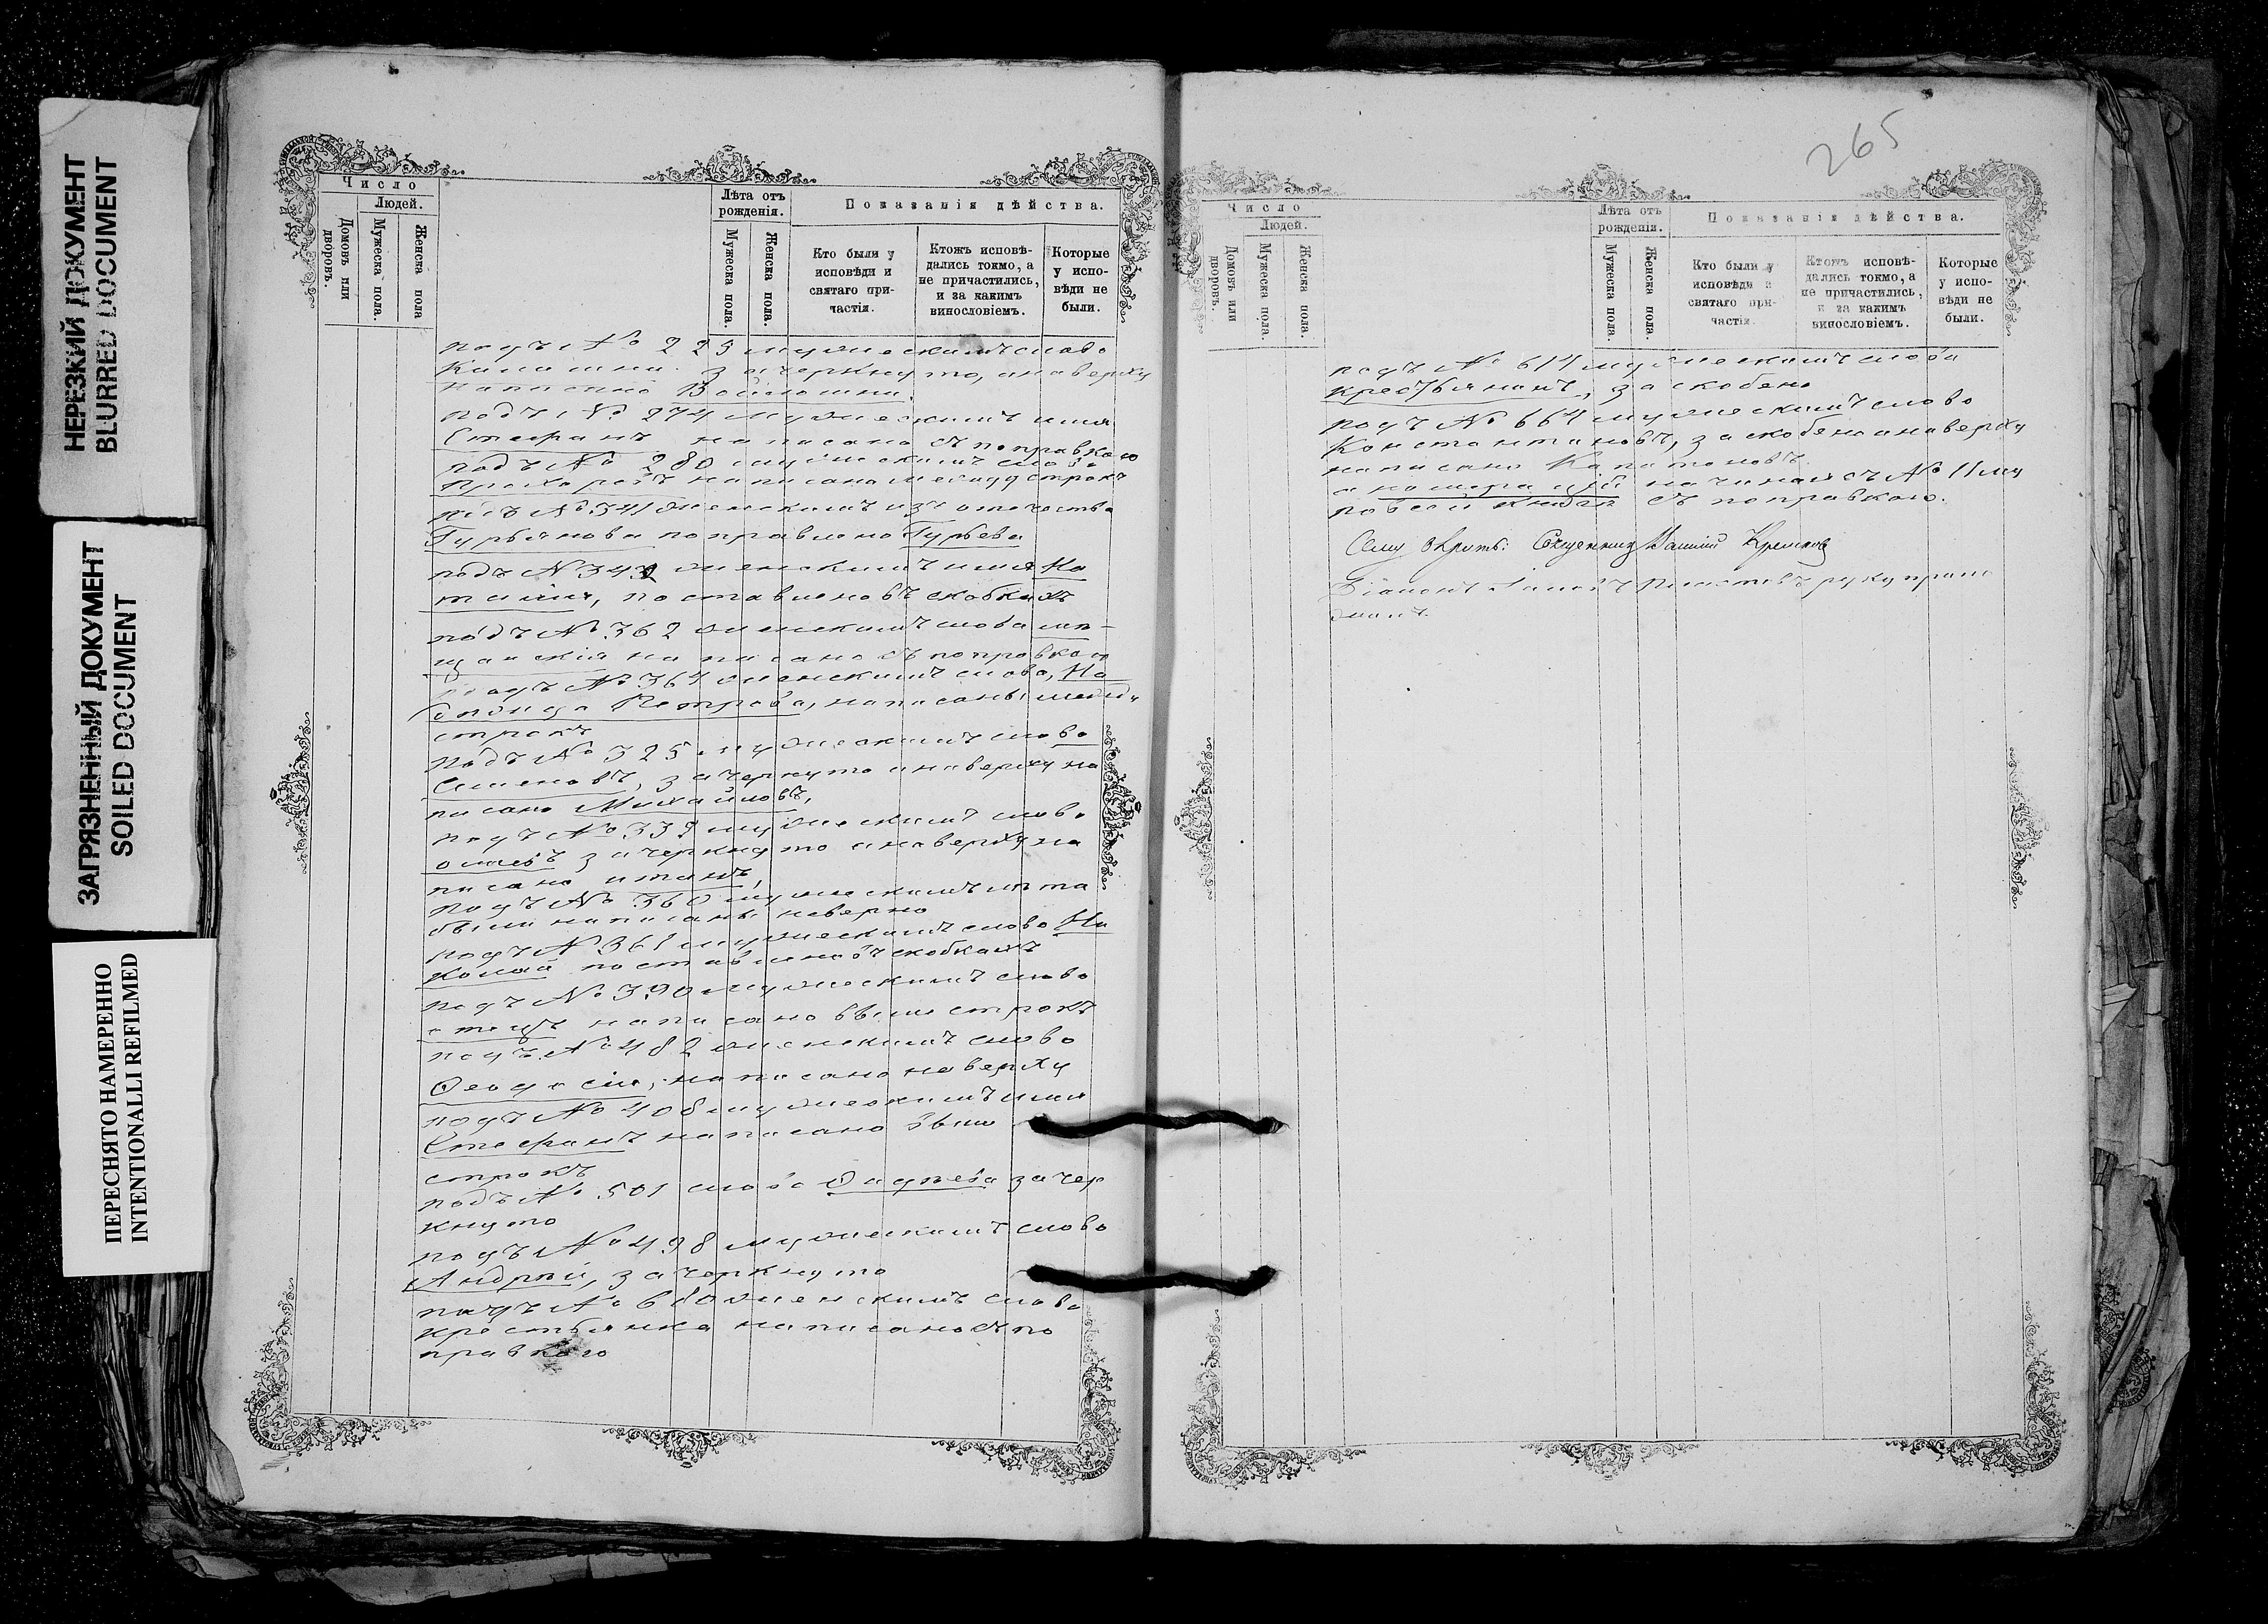 НЕРЕЗКИЙ ДОКУМЕНТ
BLURRED DOCUMENT
ЗАГРЯЗНЕННЫЙ ДОКУМЕНТ
SOILED DOCUMENT
ПЕРЕСНЯТО НАМЕРЕННО
INTENTIONALLI REFILMED
Число
Людей.
Домовъ или дворовъ.
Мужеска пола.
Женска пола
Лѣта отъ рожденія.
Мужеска пола.
Женска пола.
Показанія дѣйства.
Кто были у исповѣди и святаго причастія.
Ктожъ исповѣдались токмо, а не причастились, и за какимъ винословіемъ.
Которые у исповѣди не были.
подъ № 225 мужескимъ слово
зачеркнуто, а наверху
написано
подъ № 274 мужескимъ имя
Стефанъ написано съ поправкою
подъ № 280 мужескимъ слово
написано между строкъ
подъ № 341 женскимъ изъ отчества
Гурьянова поправлено Гурьева
подъ № женскимъ имя На
талія, поставлено въ скобкахъ
подъ № 362 женскимъ слова мѣ-
щанскія написано съ поправкою
подъ № 364 женскимъ слова,
Петрова, написаны между
строкъ
подъ № 325 мужескимъ слово
Семеновъ, зачеркнуто и наверху на
писано Михайловъ,
подъ № 339 мужескимъ слово
зачеркнуто и наверху на
писано
подъ № 360 мужескимъ лѣта
были написаны неверно
подъ № 361 мужескимъ слово Ни
колай поставлено въ скобкахъ
подъ № 390 мужескимъ слово
отецъ написано выше строкъ
подъ № 482 женскимъ слово
Феодосія, написано наверху
подъ № 408 мужескимъ имя
Стефанъ написано выше
строкъ
подъ № 501 слово зачер
кнуто
подъ № 498 мужескимъ слово
Андрей, зачеркнуто
подъ № женскимъ слово
крестьянка написано съ по
правкою
265
Число
Людей.
Домовъ или дворовъ.
Мужеска пола.
Женска пола.
Лѣта отъ рожденія.
Мужеска пола.
Женска пола.
Показанія дѣйства.
Кто были у исповѣди и святаго причастія.
Ктожъ исповѣдались токмо, а не причастились, и за какимъ винословіемъ.
Которые у исповѣди не были.
подъ № 614 мужескимъ слово
заскоблено
подъ № 664 мужескимъ слово
Константиновъ, заскоблено и наверху
написано
а номера начиная съ № 11 му
по съ поправкою.
Священникъ
Діаконъ руку прило
жилъ.